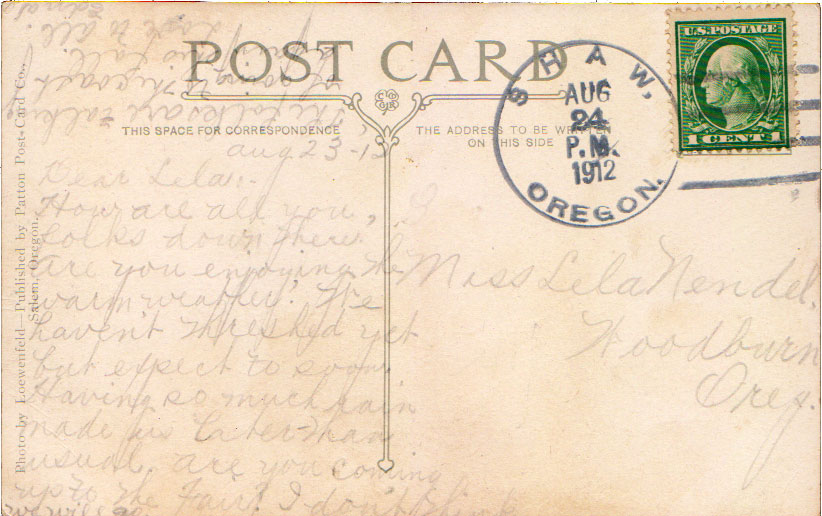 POST CARD
THIS SPACE FOR CORRESPONDENCE
THE ADDRESS TO BE WRITTEN
ON THIS SIDE
SHAW,
AUG
24
P.M.
1912
OREGON.
U.S. POSTAGE
1 CENT 1
Photo by Loewenfeld—Published by Patton Post-Card Co.,
Salem, Oregon.
Aug 23-12
Dear Lela:-
How are all you,
folks down there.
Are you enjoying the
warm weather? We
haven't threshed yet
but expect to soon
Having so much rain
made us later than
usual. are you coming
up to the Fair? I don't think
Miss Lela Nendel.
Woodburn
Oreg.
The folks are talking
of going to the coast
this fall.
Love to all
Edna